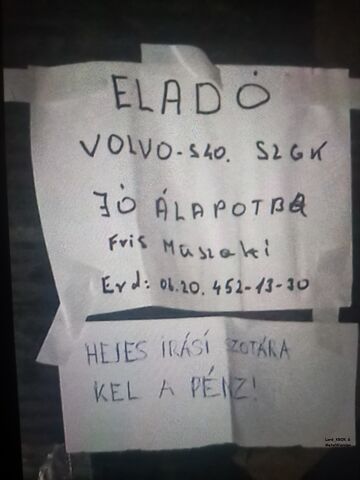 ELADÓ
VOLVO-S40. SZGK
JÓ ÁLAPOTBA
Fris Müszaki
Érd: 06.20.452-13-30
HEJES ÍRÁSÍ SZOTÁRA
KEL A PÉNZ!